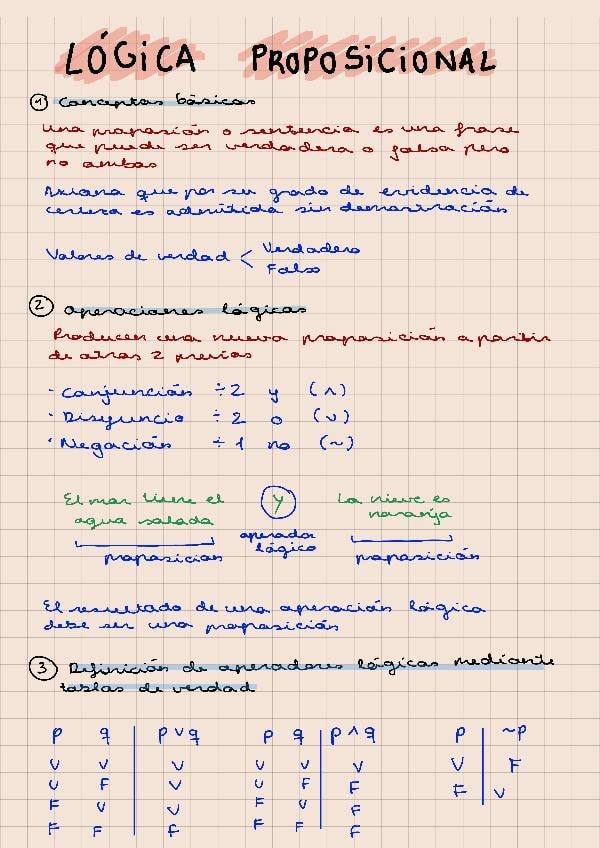 LÓGICA PROPOSICIONAL
1 Conceptos básicos
Una proposión o sentencia es una frase
que puede ser verdadera o falsa pero
no ambas
Axioma que por su grado de evidencia de
certeza es admitida sin demostración
Valores de verdad < Verdadero
Falso
2 Operaciones lógicas
Producen una nueva proposición a partir
de otras 2 previas
· Conjunción ÷ 2 y (∧)
· Disyuncio ÷ 2 o (∨)
· Negación ÷ 1 no (~)
El mar tiene el Y La nieve es
agua salada operador naranja
lógico
proposicion proposición
El resultado de una operación lógica
debe ser una proposición
3 Definición de operadores lógicos mediante
tablas de verdad
p q p ∨ q p q p ∧ q p ~p
V V V V V V V F
V F V V F F F V
F V V F V F
F F F F F F